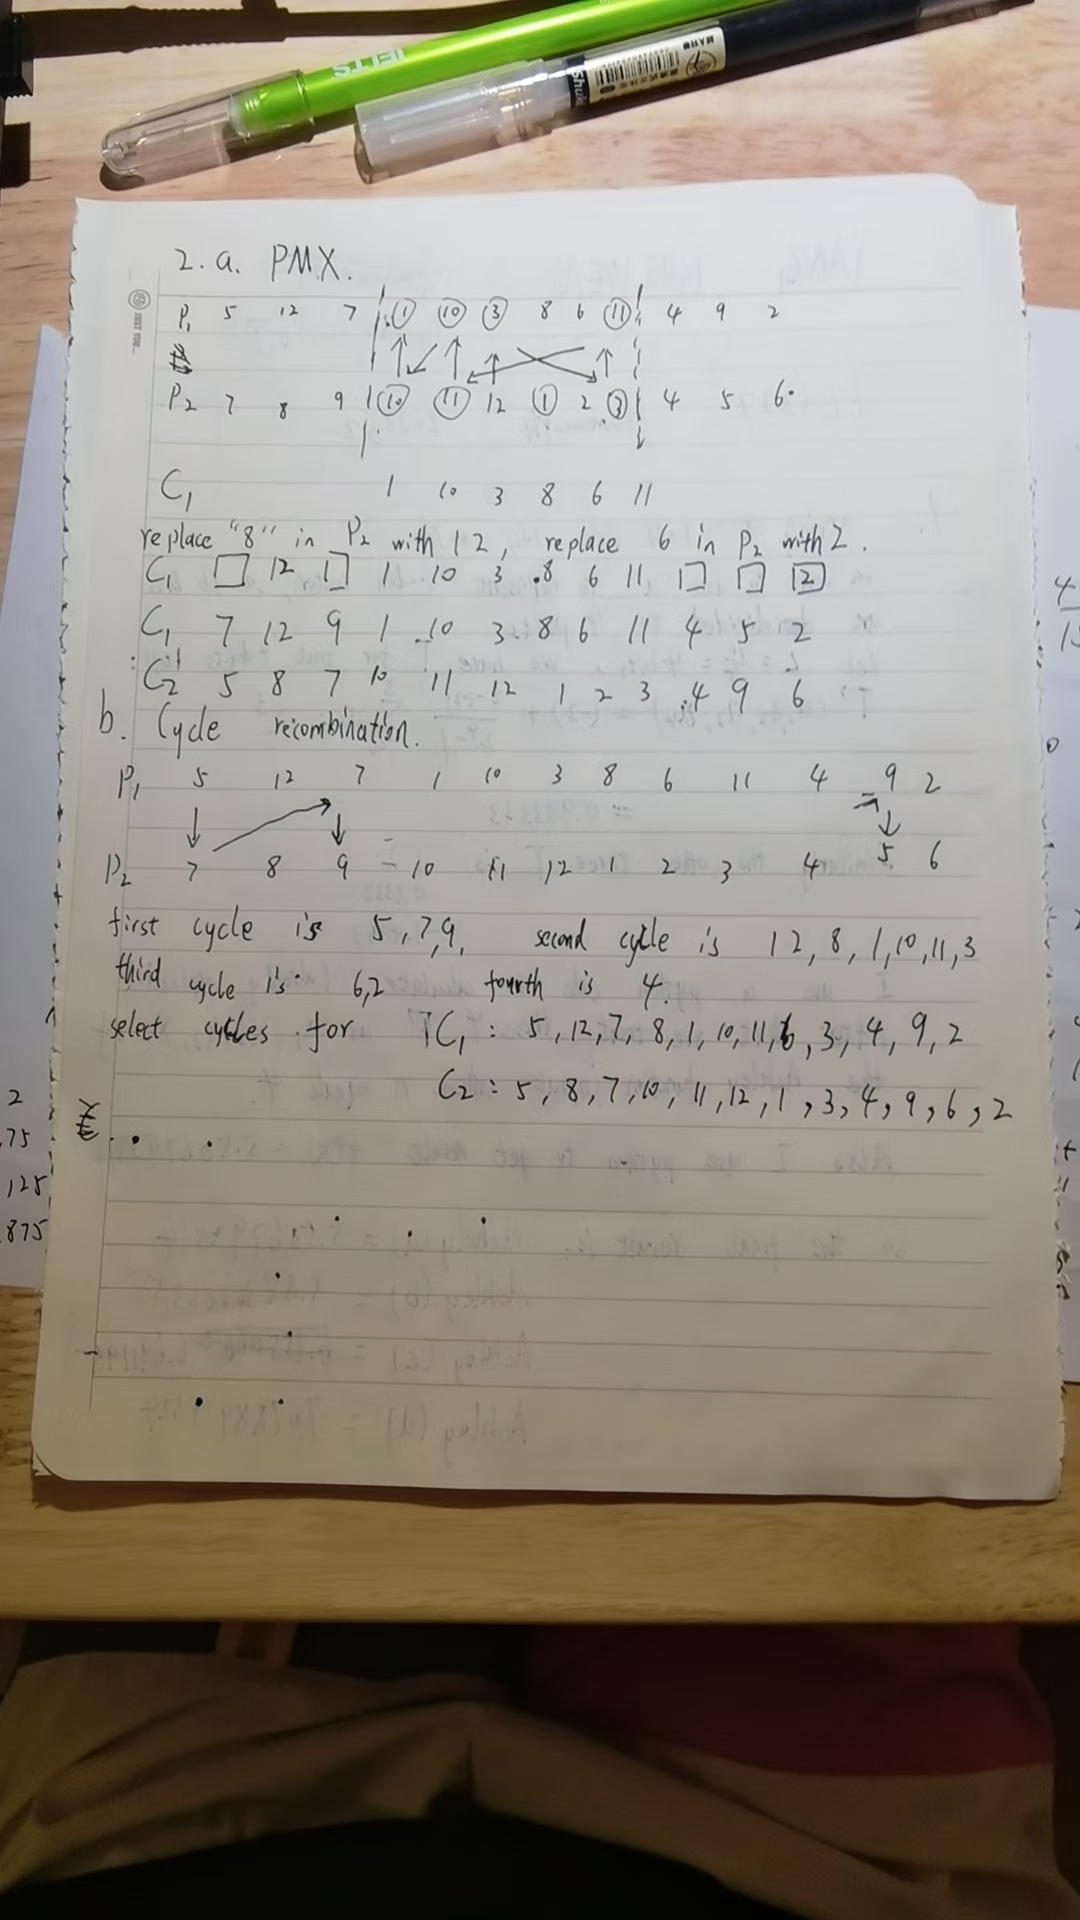 IELTS
Shuki
2.a. PMX.
P1 5 12 7 1 10 3 8 6 11 4 9 2
P2 7 8 9 10 11 12 1 2 3 4 5 6
C1 1 10 3 8 6 11
replace "8" in P2 with 12, replace 6 in P2 with 2.
C1 12 1 10 3 8 6 11 2
C1 7 12 9 1 10 3 8 6 11 4 5 2
C2 5 8 7 10 11 12 1 2 3 4 9 6
b. Cycle recombination.
P1 5 12 7 1 10 3 8 6 11 4 9 2
P2 7 8 9 10 11 12 1 2 3 4 5 6
first cycle is 5,7,9, second cycle is 12,8,1,10,11,3
third cycle is 6,2 fourth is 4.
select cycles for C1: 5,12,7,8,1,10,11,6,3,4,9,2
C2: 5,8,7,10,11,12,1,3,4,9,6,2
2
75
125
875